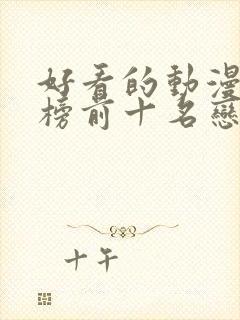 好看的動漫
榜前十名戀
十午